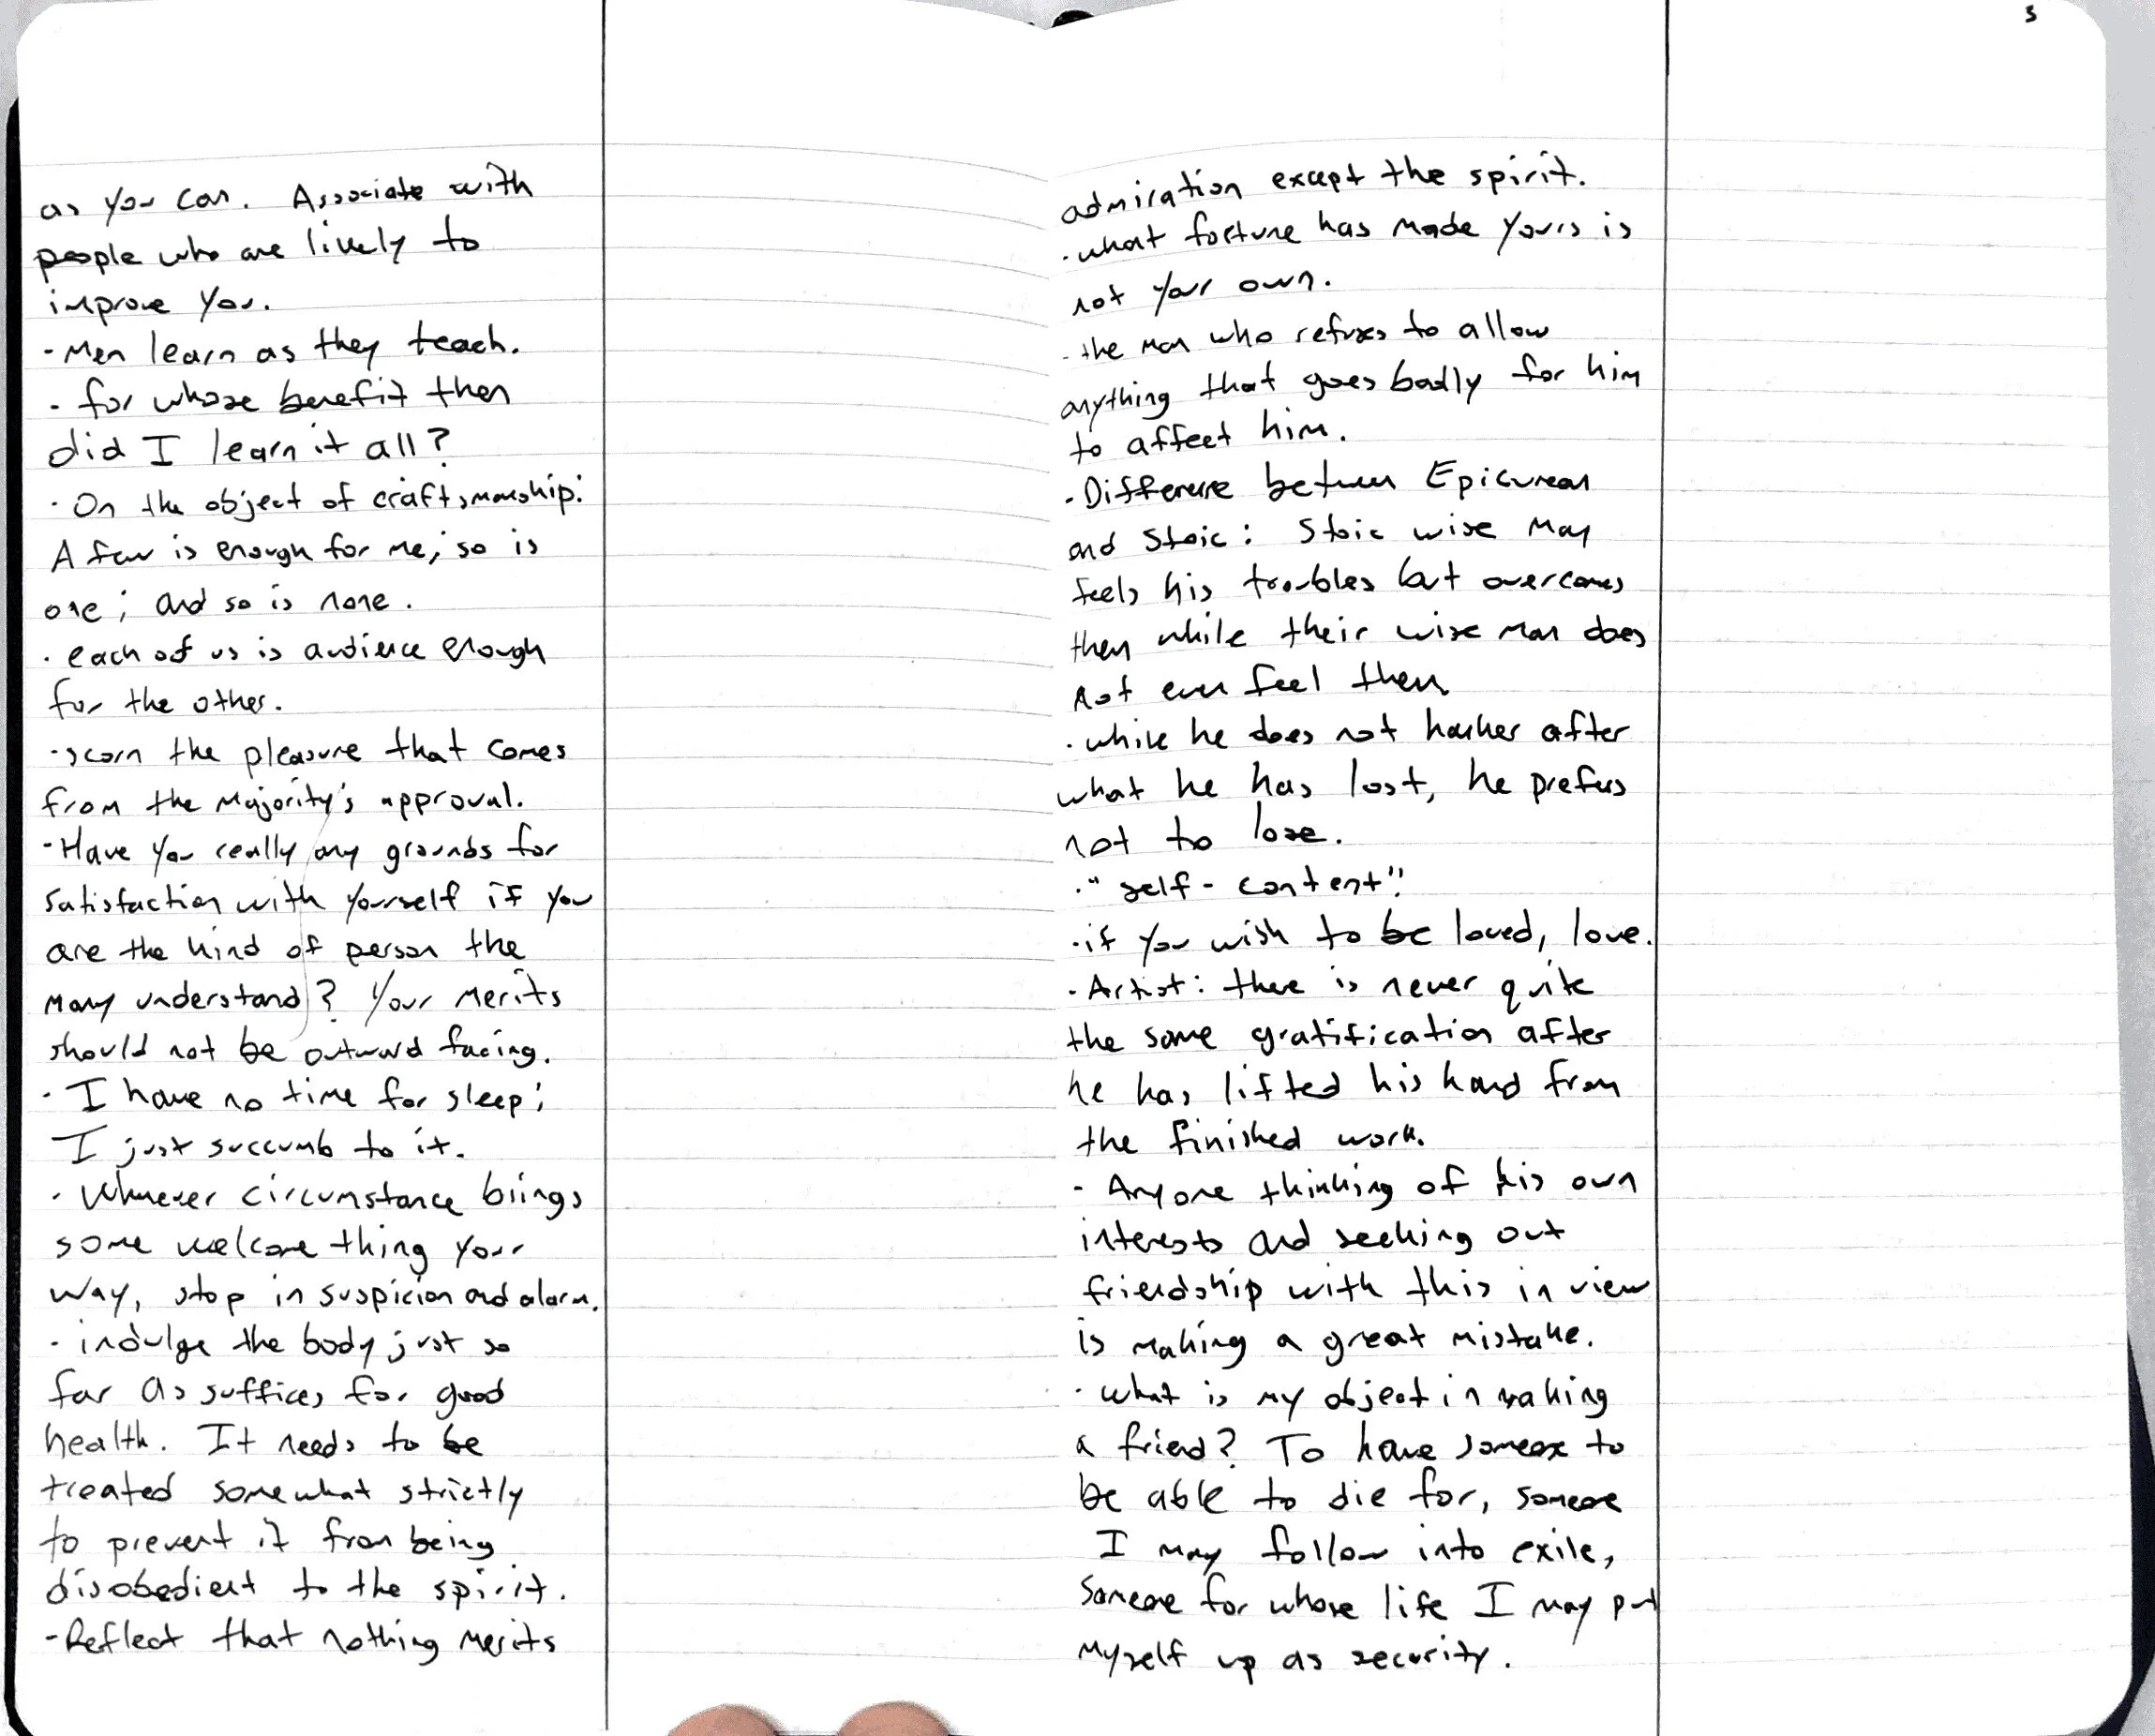 as you can. Associate with
people who are likely to
improve you.
- Men learn as they teach.
- for whose benefit then
did I learn it all?
· On the object of craftsmanship:
A few is enough for me; so is
one; and so is none.
· each of us is audience enough
for the other.
- scorn the pleasure that comes
from the Majority's approval.
- Have you really any grounds for
satisfaction with yourself if you
are the kind of person the
many understand? Your merits
should not be outward facing.
· I have no time for sleep;
I just succumb to it.
· Whenever circumstance brings
some welcome thing your
way, stop in suspicion and alarm.
- indulge the body just so
far as suffices for good
health. It needs to be
treated somewhat strictly
to prevent it from being
disobedient to the spirit.
- Reflect that nothing merits
5
admiration except the spirit.
· what fortune has made yours is
not your own.
- the man who refuses to allow
anything that goes badly for him
to affect him.
· Difference between Epicurean
and Stoic: Stoic wise man
feels his troubles but overcomes
them while their wise man does
not even feel them
· while he does not hanker after
what he has lost, he prefers
not to lose.
· "self-content"!
· if you wish to be loved, love.
· Artist: there is never quite
the same gratification after
he has lifted his hand from
the finished work.
- Anyone thinking of his own
interests and seeking out
friendship with this in view
is making a great mistake.
· what is my object in making
a friend? To have someone to
be able to die for, someone
I may follow into exile,
someone for whose life I may put
myself up as security.